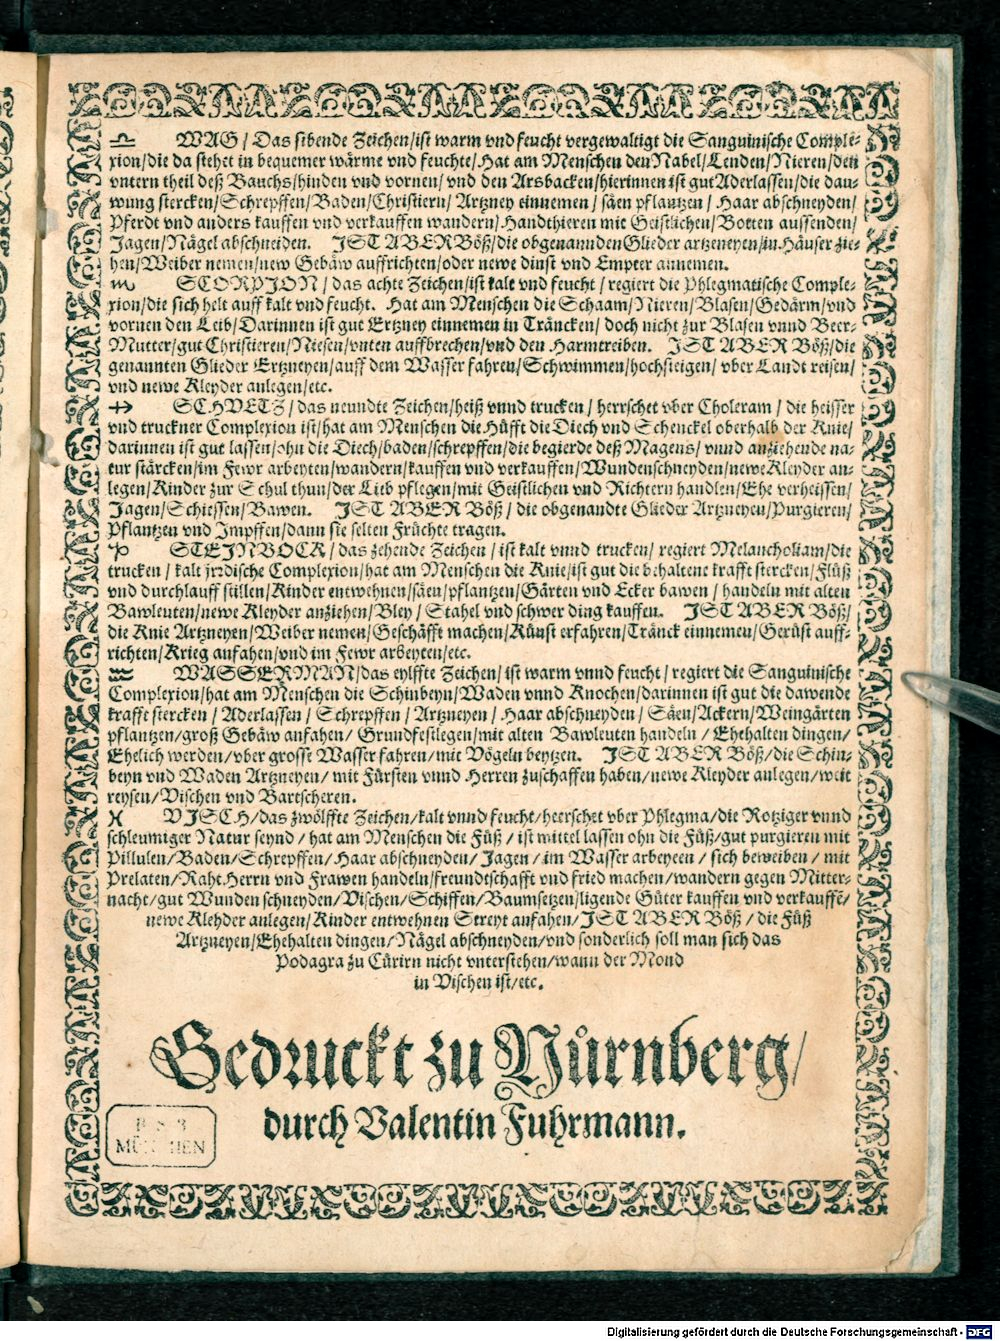 ♎ WAG / Das sibende Zeichen/ist warm vnd feucht vergewaltigt die Sanguinische Comple-
xion/die da stehet in bequemer wärme vnd feuchte/Hat am Menschen den Nabel/Lenden/Nieren/den
vntern theil deß Bauchs/hinden vnd vornen/ vnd den Arsbacken/hierinnen ist gut Aderlassen/die dau-
wung stercken/Schrepffen/Baden/Christiern/ Artzney einnemen / säen pflantzen / Haar abschneyden/
Pferdt vnd anders kauffen vnd verkauffen wandern/ Handthieren mit Geistlichen/Botten aussenden/
Jagen/Nägel abschneiden. IST ABER Böß/die obgenannden Glieder artzeneyen/in Häuser zie-
hen/Weiber nemen/new Gebäw auffrichten/oder newe dinst vnd Empter annemen.
♏ SCORPION / das achte Zeichen/ist kalt vnd feucht / regiert die Phlegmatische Comple-
xion/die sich helt auff kalt vnd feucht. Hat am Menschen die Schaam/Nieren/Blasen/Gedärm/vnd
vornen den Leib/Darinnen ist gut Ertzney einnemen in Träncken/ doch nicht zur Blasen vnnd Beer-
Mutter/gut Christieren/Niesen/vnten auffbrechen/vnd den Harmtreiben. IST ABER Böß/die
genannten Glieder Ertzneyen/auff dem Wasser fahren/Schwimmen/hochsteigen/ vber Landt reisen/
vnd newe Kleyder anlegen/etc.
♐ SCHVETZ / das neundte Zeichen/heiß vnnd trucken / herrschet vber Choleram / die heisser
vnd truckner Complexion ist/hat am Menschen die Hüfft die Diech vnd Schenckel oberhalb der Knie/
darinnen ist gut lassen/ohn die Diech/baden/schrepffen/die begierde deß Magens/ vnnd anziehende na-
tur stärcken/im Fewr arbeyten/wandern/kauffen vnd verkauffen/Wundenschneyden/newe Kleyder an-
legen/Kinder zur Schul thun/der Lieb pflegen/mit Geistlichen vnd Richtern handlen/Ehe verheissen/
Jagen/Schiessen/Bawen. IST ABER Böß / die obgenandte Glieder Artzneyen/Purgieren/
Pflantzen vnd Impffen/dann sie selten Früchte tragen.
♑ STEINBOCK / das zehende Zeichen / ist kalt vnnd trucken/ regiert Melancholiam/die
trucken / kalt jrrdische Complexion/hat am Menschen die Knie/ist gut die behaltene krafft stercken/Flüß
vnd durchlauff stillen/Kinder entwehnen/säen/pflantzen/Gärten vnd Ecker bawen / handeln mit alten
Bawleuten/newe Kleyder anziehen/Bley / Stahel vnd schwer ding kauffen. IST ABER Böß/
die Knie Artzneyen/Weiber nemen/Geschäfft machen/Künst erfahren/Tränck einnemen/Gerüst auff-
richten/Krieg anfahen/vnd im Fewr arbeyten/etc.
♒ WASSERMAN/das eylffte Zeichen/ ist warm vnnd feucht / regiert die Sanguinische
Complexion/hat am Menschen die Schinbeyn/Waden vnnd Knochen/darinnen ist gut die dawende
kraffe stercken / Aderlassen / Schrepffen / Artzneyen / Haar abschneyden / Säen/Ackern/Weingärten
pflantzen/groß Gebäw anfahen/ Grundfestlegen/mit alten Bawleuten handeln / Ehehalten dingen/
Ehelich werden/vber grosse Wasser fahren/mit Vögeln beytzen. IST ABER Böß/die Schin-
beyn vnd Waden Artzneyen/ mit Fürsten vnnd Herren zuschaffen haben/newe Kleyder anlegen/weit
reysen/Vischen vnd Bartscheren.
♓ VISCH/das zwölffte Zeichen/kalt vnnd feucht/heerschet vber Phlegma/die Rotziger vnnd
schleumiger Natur seynd / hat am Menschen die Füß / ist mittel lassen ohn die Füß/gut purgieren mit
Pillulen/Baden/Schrepffen/Haar abschneyden/ Jagen / im Wasser arbeyeen / sich beweiben / mit
Prelaten/Raht Herrn vnd Frawen handeln/freundtschafft vnd fried machen/wandern gegen Mitter-
nacht/gut Wunden schneyden/Vischen/Schiffen/Baumsetzen/ligende Güter kauffen vnd verkauffē/
newe Klehder anlegen/Kinder entwehnen Streyt anfahen/IST ABER Böß / die Füß
Artzneyen/Ehehalten dingen/Nägel abschneyden/vnd sonderlich soll man sich das
Podagra zu Cürirn nicht vnterstehen/wann der Mond
in Vischen ist/etc.
Gedruckt zu Nürnberg/
durch Valentin Fuhrmann.
MÜNCHEN
Digitalisierung gefördert durch die Deutsche Forschungsgemeinschaft - DFG